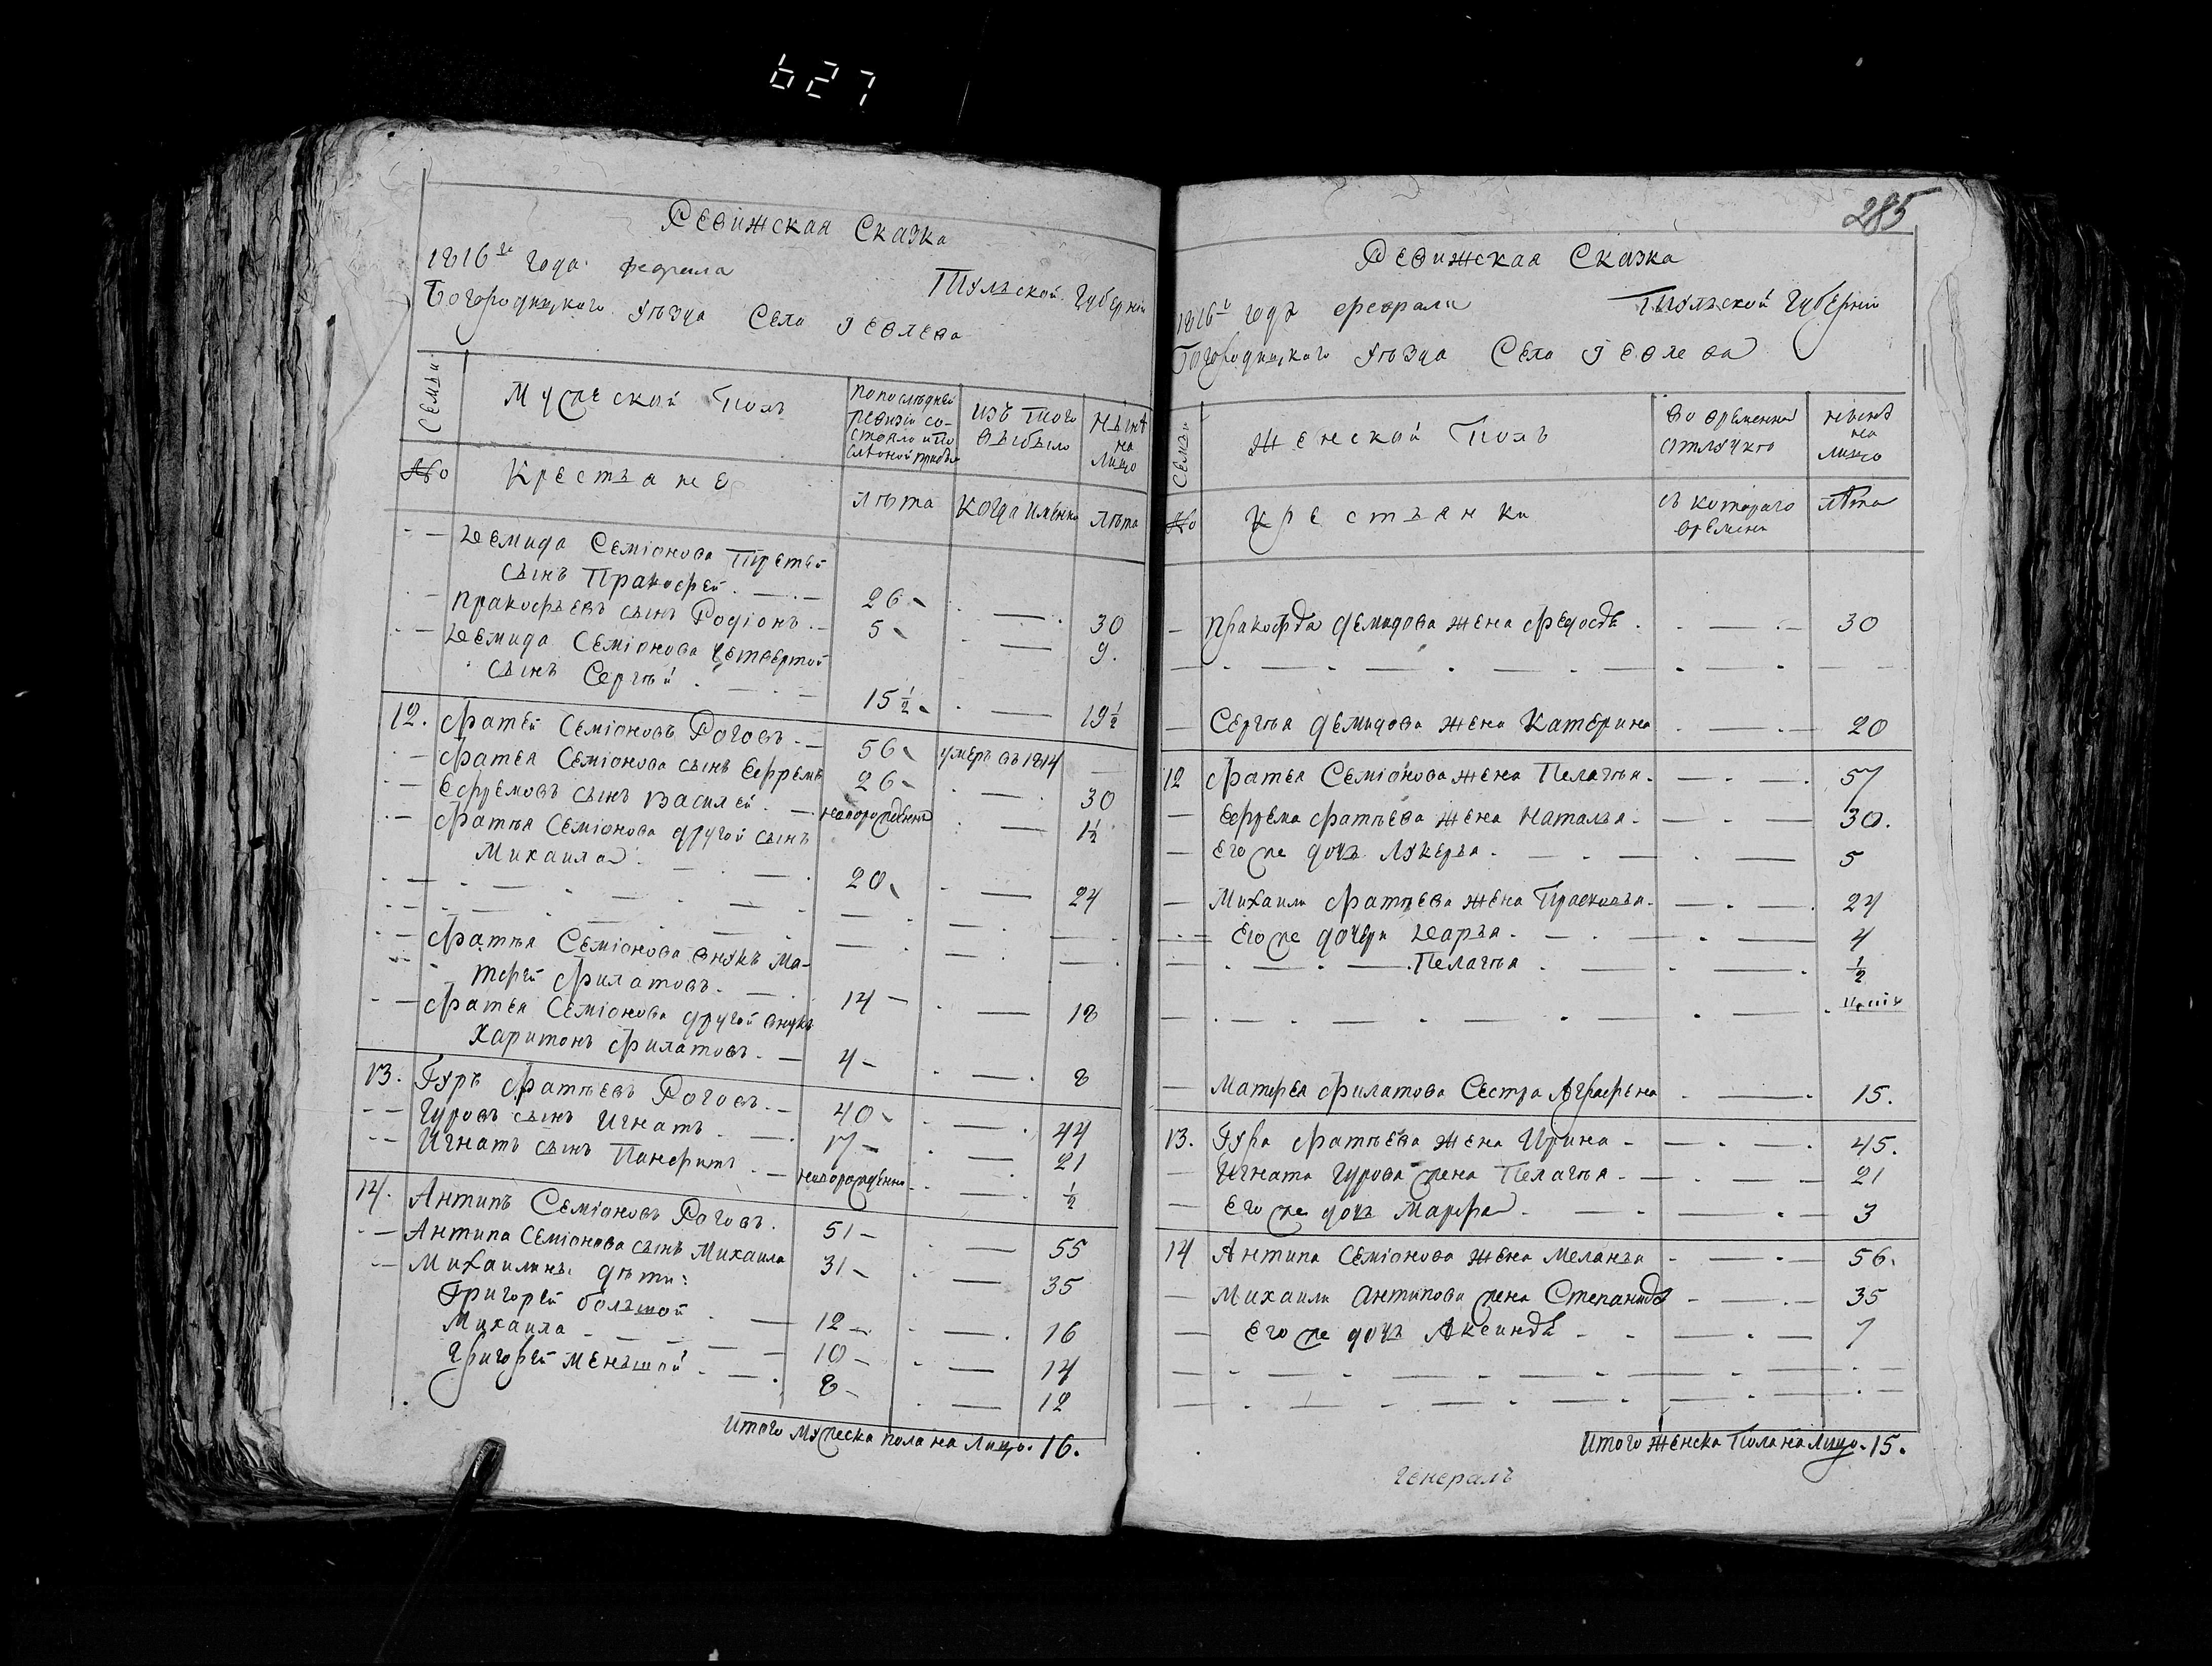 627
Ревижская Сказка
1816го года февраля Тульской Губернии
Богородицкого уѣзда Села Іевлева
Семьи
Мужеской Полъ
по послѣдней ревизіи состояло и по
слѣ оной прибыло
изъ того
выбыло
нынѣ
на
лицо
№
Крестьяне
лѣта
когда имянно
лѣта
Демида Семіонова третей
сынъ Пракофей 26 30
Пракофьевъ сынъ Родіонъ 5 9.
Демида Семіонова четвертой
сынъ Сергѣй 15 ½ 19 ½
12. Фатей Семіоновъ Роговъ 56 умеръ въ 1814
Фатея Семіонова сынъ Ефремъ 26 30
Ефремовъ сынъ Василей новорожденна 1½
Фатѣя Семіонова другой сынъ
Михаила 20 24
Фатѣя Семіонова внукъ Ма-
тфей Филатовъ 14 18
Фатея Семіонова другой внукъ
Харитонъ Филатовъ 4 8
13. Гуръ Фатѣевъ Роговъ 40 44
Гуровъ сынъ Игнатъ 17 21
Игнатъ сынъ Панфилъ новорожденна ½
14. Антипъ Семіоновъ Роговъ 51 55
Антипа Семіонова сынъ Михаила 31 35
Михаилины дѣти:
Григорей большой 12 16
Михаила 10 14
Григорей меньшой 8 12
Итого мужеска пола на лицо 16.
285
Ревижская Сказка
1816й годъ февраля Тульской Губерніи
Богородицкаго уѣзда Села Іевлева
Семьи
Женской Полъ
во временной
отлучкѣ
нынѣ
на
лицо
№
Крестьянки
съ котораго
времени
лѣта
Пракофья Демидова жена Федосья 30
Сергѣя Демидова жена Катерина 20
12 Фатея Семіонова жена Пелагѣя 57
Ефрема Фатѣева жена Наталья 30.
Его же дочь Лукерья 5
Михаила Фатѣева жена Прасковья 24
Его же дочери Дарья 4
Пелагѣя ½
Матфея Филатова Сестра Аграфена 15.
13. Гура Фатѣева жена Ирина 45.
Игната Гурова жена Пелагѣя 21
Его же дочь Марфа 3
14 Антипа Семіонова жена Меланья 56.
Михаила Антипова жена Степанида 35
Его же дочь Аксинья 7
Итого женска пола на лицо 15.
Генералъ